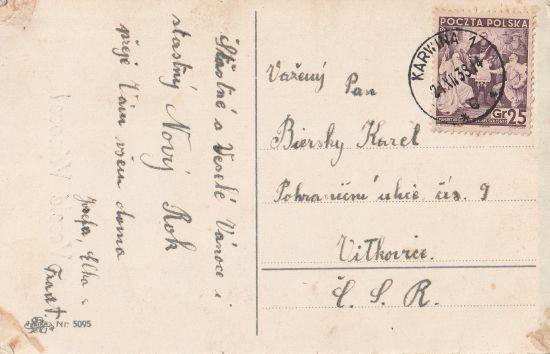 Šťastné a Veselé Vánoce i
šťastný Nový Rok
přeje Vám všem doma
Josefa, Elka a
Nr. 5095
POCZTA POLSKA
Gr 25
KARWINA 1
Vážený Pan
Biersky Karel
Pohraniční ulice čís. 9
Vítkovice.
Č. S. R.